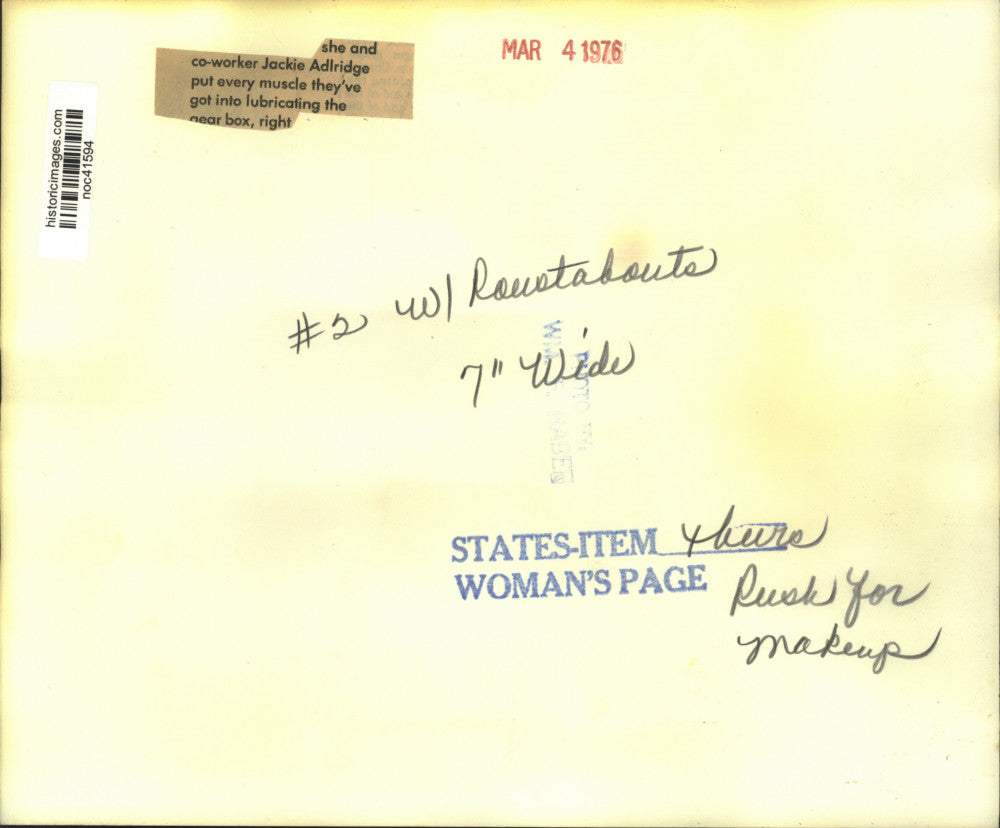 she and
co-worker Jackie Adlridge
put every muscle they've
got into lubricating the
gear box, right
MAR 4 1976
historicimages.com
noc41594
#2 W/ Roustabouts
7" Wide
PHOTO BY
STATES-ITEM thurs
WOMAN'S PAGE
Rush for
makeup